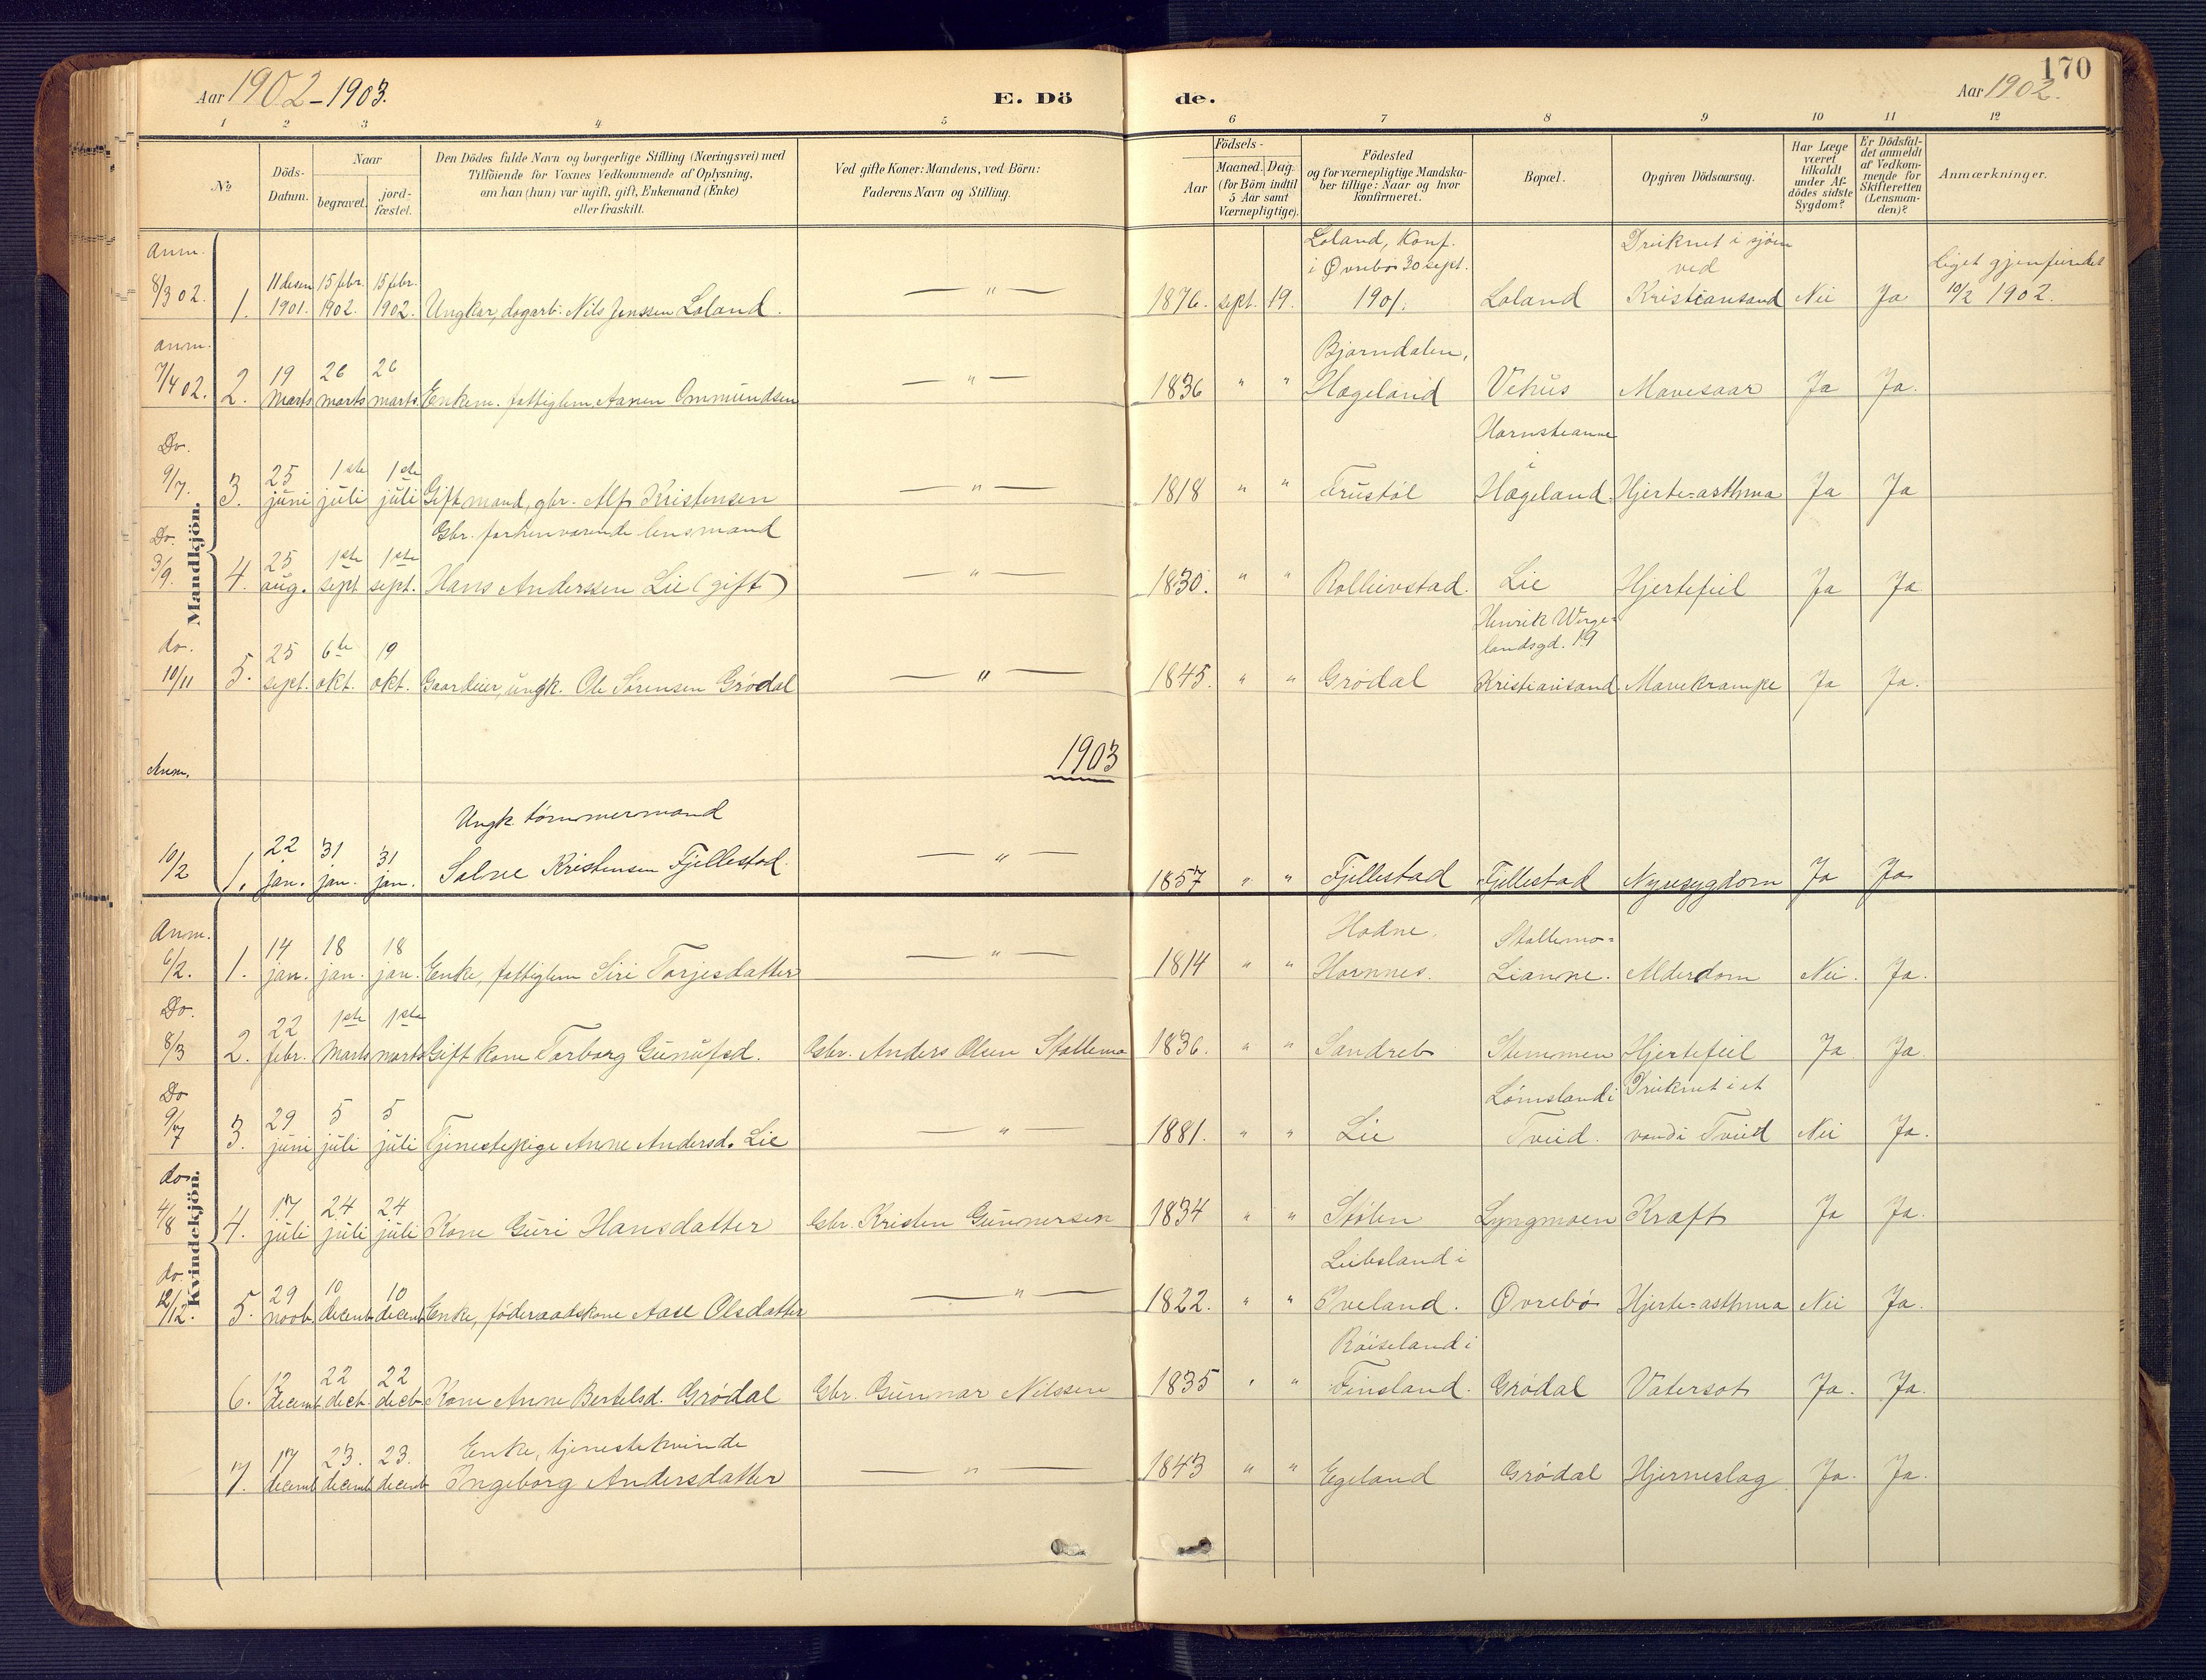 Aar 1902-1903.
E. Dö
de.
170
Aar 1902.
1 2 3 4 5 6 7 8 9 10 11 12
No
Döds-
Datum.
Naar
begravet.
jord-
fæstet.
Den Dödes fulde Navn og borgerlige Stilling (Næringsvei) med
Tilföiende for Voxnes Vedkommende af Oplysning,
om han (hun) var ugift, gift, Enkemand (Enke)
eller fraskilt.
Ved gifte Koner: Mandens, ved Börn:
Faderens Navn og Stilling.
Födsels-
Aar
Maaned. Dag.
(for Börn indtil
5 Aar samt
Værnepligtige).
Födested
og for værnepligtige Mandska-
ber tillige: Naar og hvor
konfirmeret.
Bopæl.
Opgiven Dödsaarsag.
Har Læge
været
tilkaldt
under Af-
dödes sidste
Sygdom?
Er Dödsfal-
det anmeldt
af Vedkom-
mende for
Skifteretten
(Lensman-
den)?
Anmærkninger.
Mandkjön.
Anm. Loland, Konf. Druknet i sjöen
i Øvrebø 30 sept. ved Liget gjenfundet
8/3 02. 1. 11 desem 1901. 15 febr. 1902. 15 febr. 1902. Ungkar, dagarb: Nils Jenssen Loland. — " — 1876. sept. 19. 1901. Loland Kristiansand Nei Ja 10/2 1902.
anm. Bjørndalen,
7/4 02. 2. 19 marts 26 marts 26 marts. Enkem. fattiglem Aanen Ommundsen — " — 1836 " " Hægeland Vehus Mavesaar Ja Ja.
Do. Hornsteanne
i
9/7. 3. 25 juni 1ste juli 1ste juli Gift mand, gbr. Alf Kristensen — " — 1818 " " Frustøl Hægeland. Hjerte=asthma Ja Ja
Do. Gbr. forhenværende lensmand
3/9. 4. 25 aug. 1ste sept 1ste sept. Hans Anderssen Lie (gift) — " — 1830. " " Rolleivstad. Lie Hjertefeil Ja Ja
do. Henrik Werge-
landsgd. 19
10/11 5. 25 sept. 6te okt. 19 okt. Gaardeier, ungk. Ole Sørensen Grødal — " — 1845. " " Grødal Kristiansand Mavekrampe Ja Ja.
1903
Anm.
Ungk. tømmermand
10/2 1. 22 jan. 31 jan. 31 jan. Salve Kristensen Fjellestad. — " — 1857 " " Fjellestad Fjellestad Nyresygdom Ja Ja
Kvindekjön.
Anm. Hodne. Stallemo=
6/2. 1. 14 jan. 18 jan. 18 jan. Enke, fattiglem Siri Torjesdatter — " — 1814 " " Hornnes. Lianne. Alderdom Nei. Ja.
Do.
8/3 2. 22 febr. 1ste marts 1ste marts Gift kone Torborg Gunufsd. Gbr. Anders Olsen Stallemo 1836. " " Sandreb Stemmen Hjertefeil Ja Ja.
Do Lömsland i Druknet i et
9/7 3. 29 juni 5 juli 5 juli Tjenestepige Anne Andersd. Lie — " — 1881. " " Lie Tveid. vand i Tveid Nei Ja.
do.
4/8 4. 17 juli 24 juli 24 juli Kone Guri Hansdatter Gbr. Kristen Gunnersen 1834 " " Stølen Lyngmoen Kræft Ja Ja.
do. Leibsland i
12/12. 5. 29 novb. 10 decemb 10 decemb Enke, føderaadskone Aase Olsdatter — " — 1822. " " Iveland. Øvrebø Hjerte=asthma Nei Ja.
Røiseland i
6. 12 decemb 22 decb. 22 decb. Kone Anne Bertelsd. Grødal Gbr. Gunnar Nilssen 1835 " " Finsland. Grødal Vatersot Ja. Ja.
Enke, tjenestekvinde
7. 17 decemb 23. decemb 23. decemb Ingeborg Andersdatter — " — 1843 " " Egeland Grødal Hjerneslag Ja. Ja.